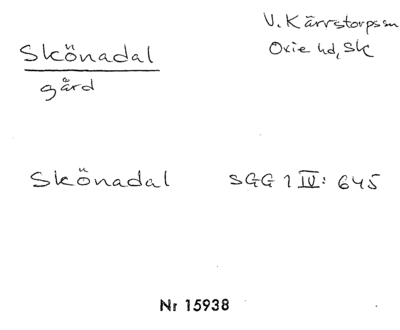 Skönadal
gård
V. Kärrstorps sn
Oxie hd, Sk
Skönadal SGG 1 IV: 645
Nr 15938